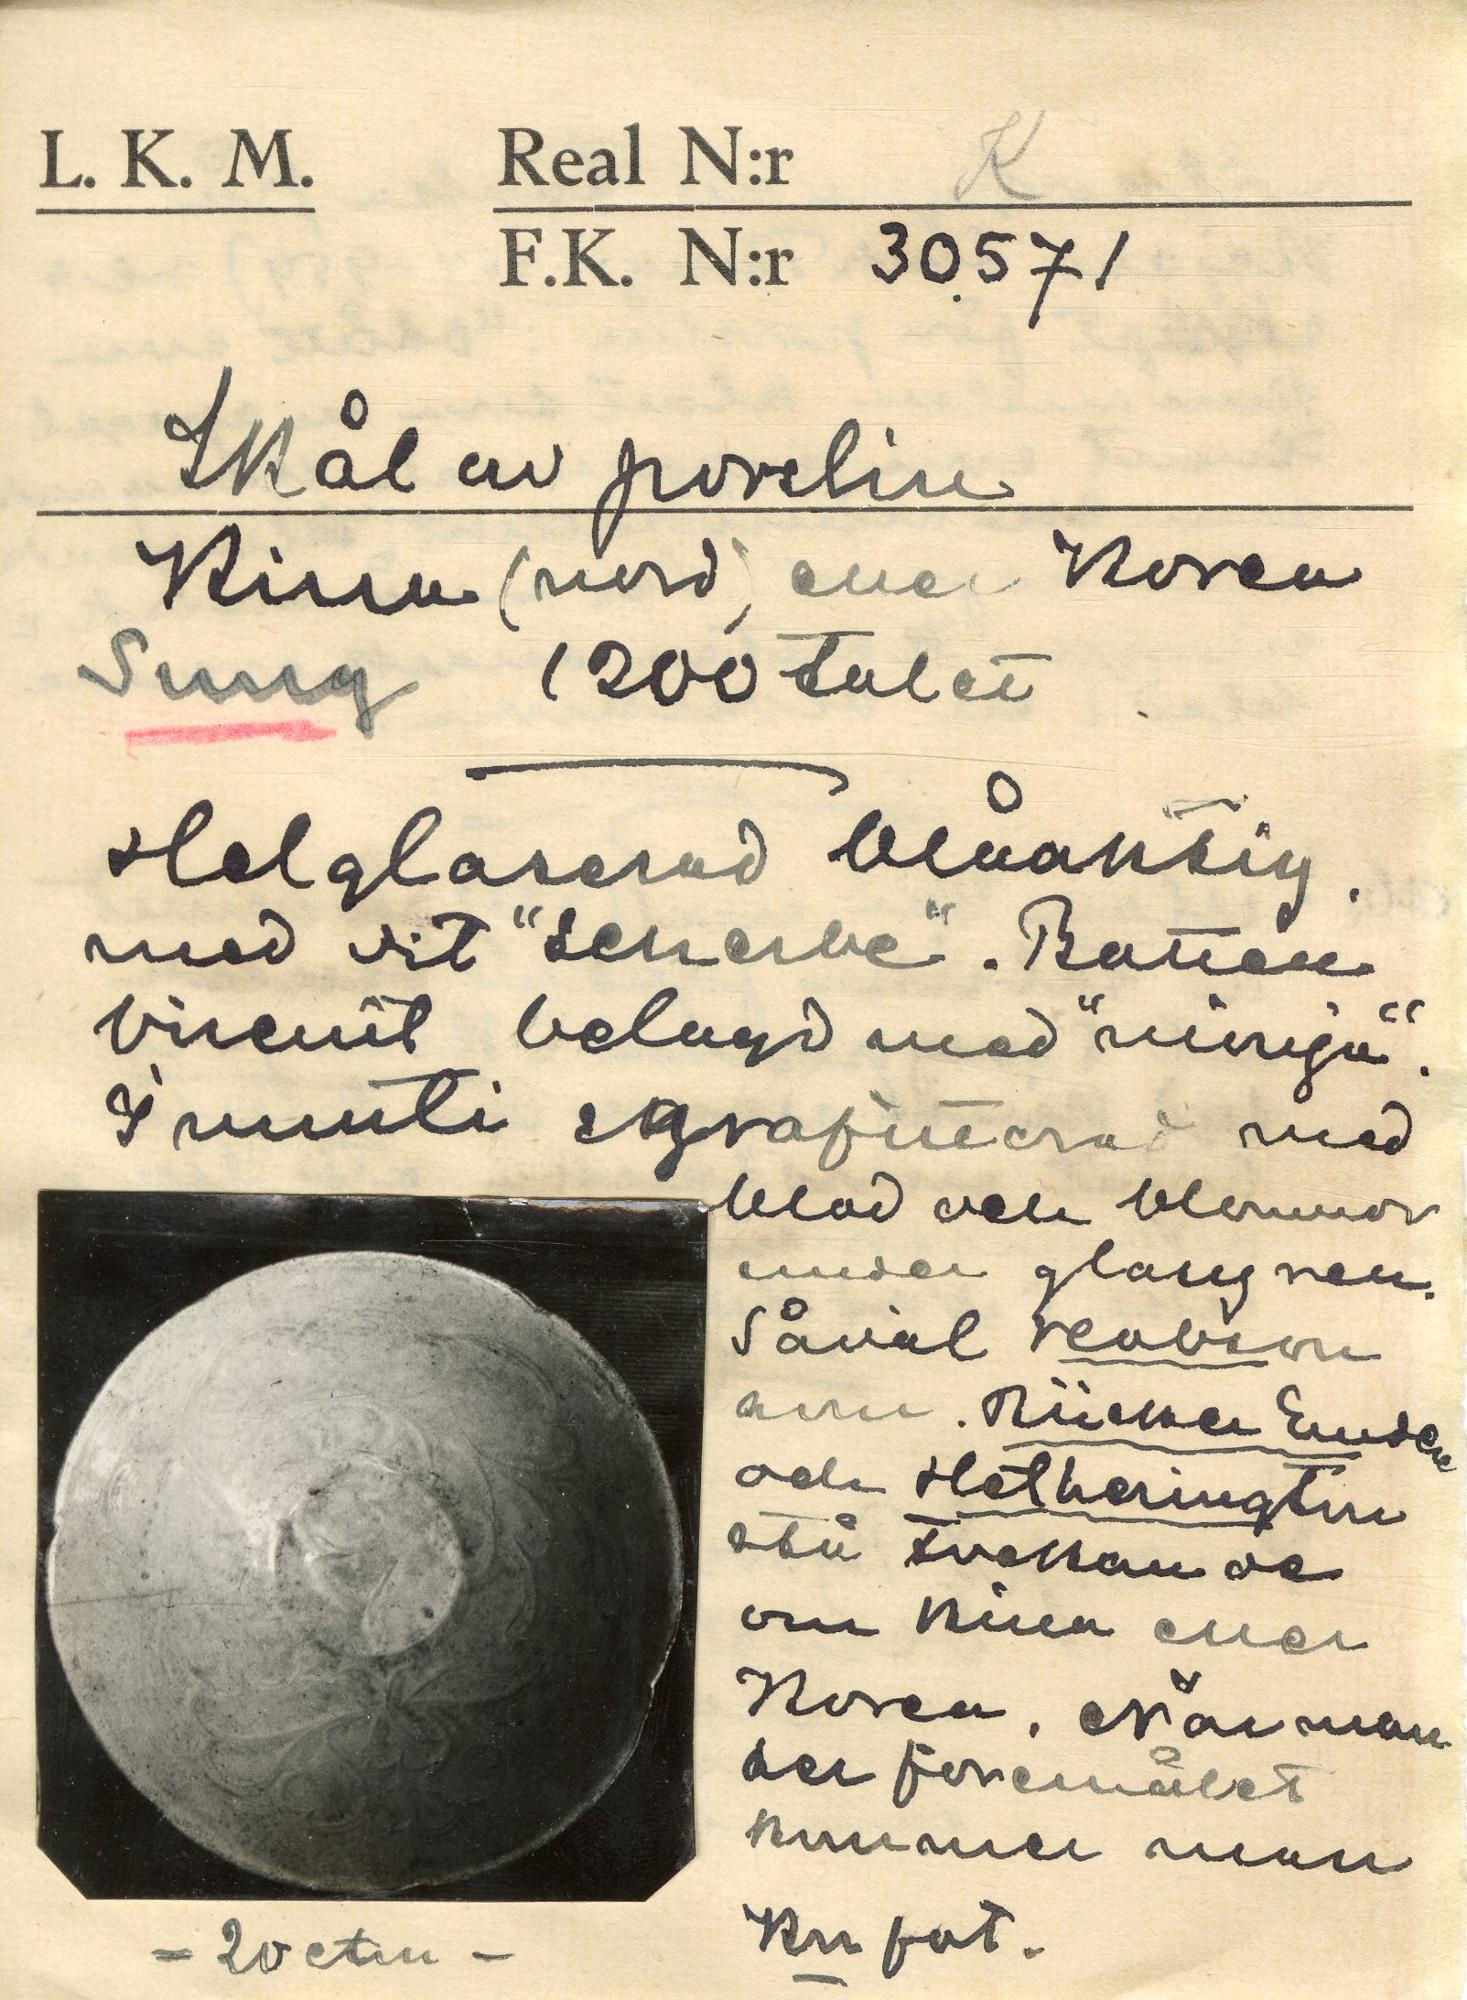 L. K. M.
Real N:r K
F.K. N:r 30571
Skål av porslin
Kina (nord) eller Korea
Sung 1200 talet
Helglaserad blåaktig.
med vit "scherbe". Botten
biscuit belagd med
Inuti sgrafiterad med
blad och blommor
under glasyren.
Såväl Jacobson
som. Rücker Embden
och Hetherington
stå tvekande
om Kina eller
Korea. När man
ser föremålet
kommer man
fat.
- 20 ctm -